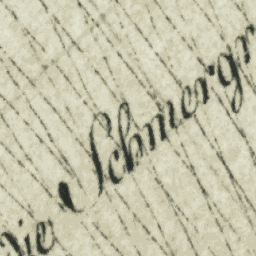 die Schmergr